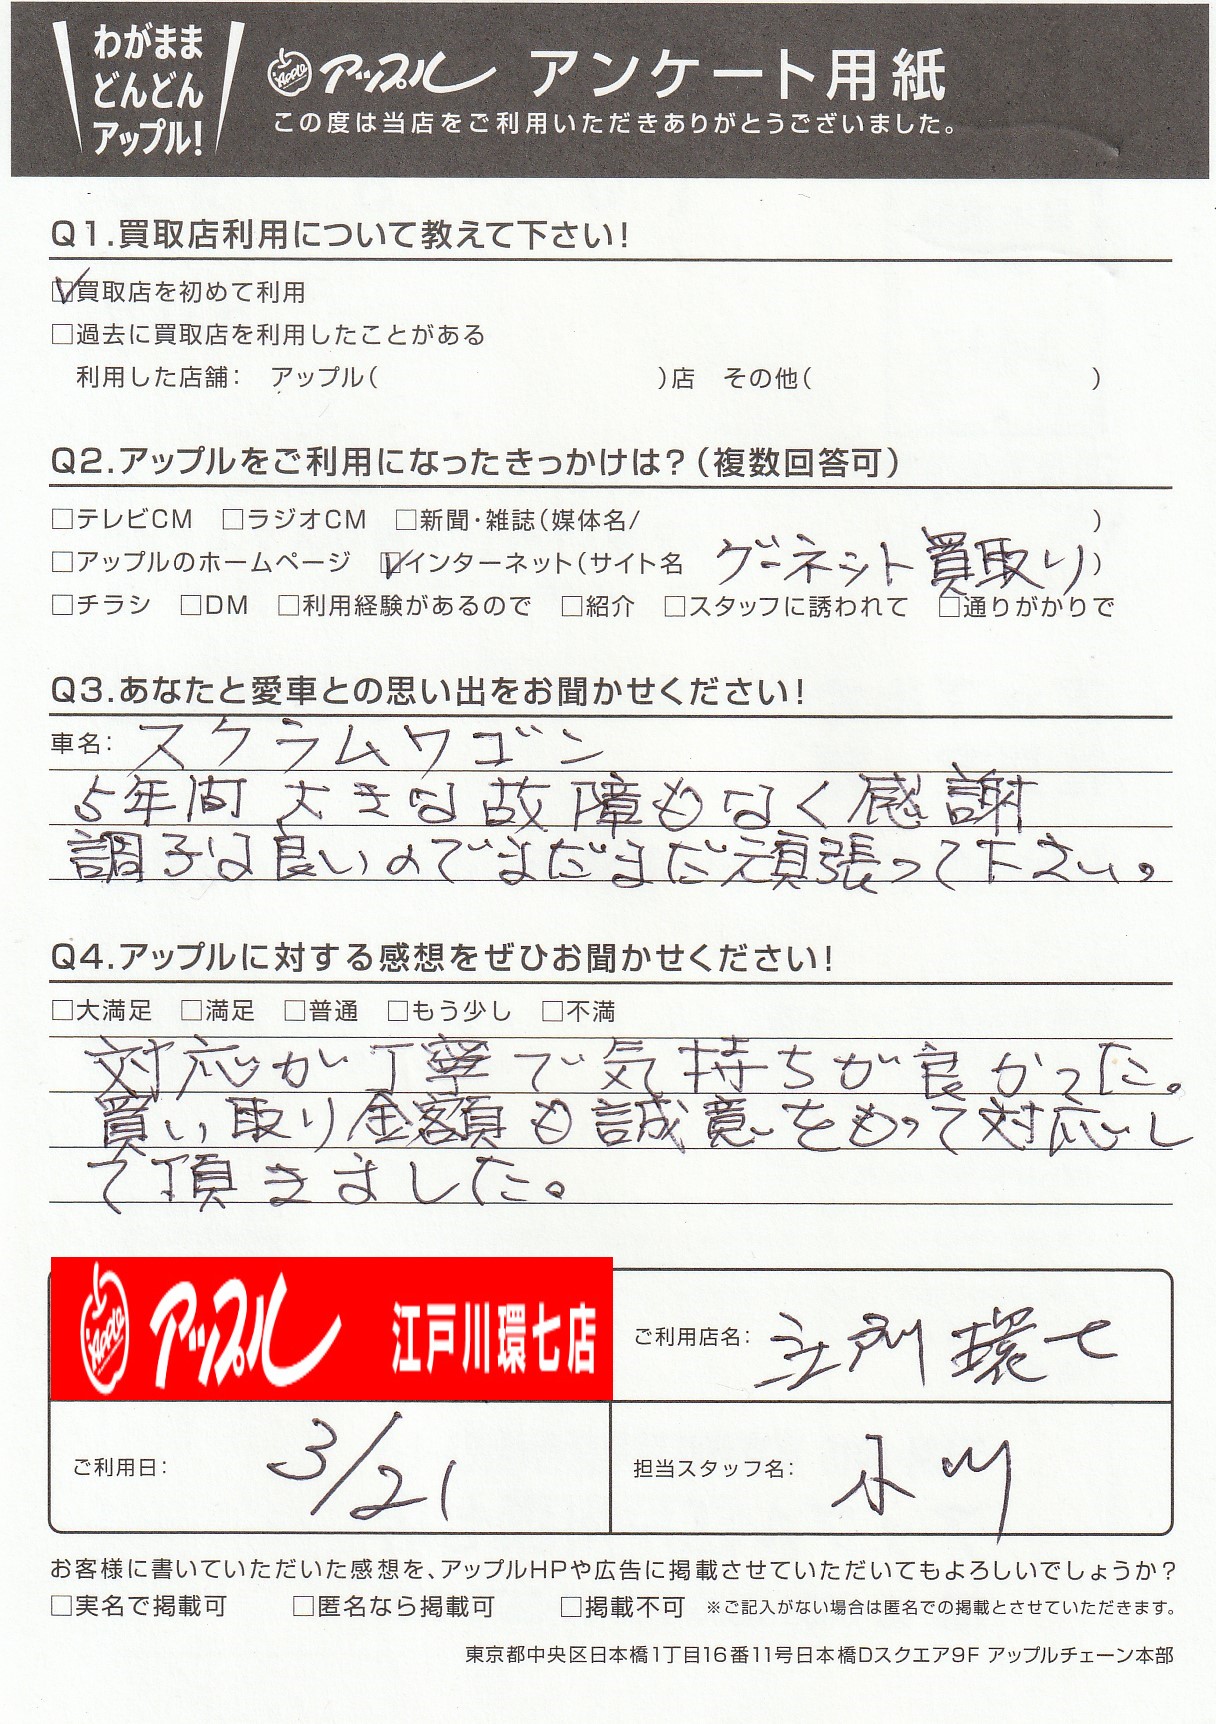 わがまま
どんどん
アップル!
Apple アップル アンケート用紙
この度は当店をご利用いただきありがとうございました。
Q1.買取店利用について教えて下さい!
☑買取店を初めて利用
□過去に買取店を利用したことがある
利用した店舗: アップル( )店 その他( )
Q2.アップルをご利用になったきっかけは?(複数回答可)
□テレビCM □ラジオCM □新聞・雑誌(媒体名/ )
□アップルのホームページ ☑インターネット(サイト名 グーネット買取り)
□チラシ □DM □利用経験があるので □紹介 □スタッフに誘われて □通りがかりで
Q3.あなたと愛車との思い出をお聞かせください!
車名: スクラムワゴン
5年間大きな故障もなく感謝
調子は良いのでまだまだ頑張って下さい。
Q4.アップルに対する感想をぜひお聞かせください!
□大満足 □満足 □普通 □もう少し □不満
対応が丁寧で気持ちが良かった。
買い取り金額も誠意をもって対応し
て頂きました。
Apple アップル 江戸川環七店
ご利用店名: 江戸川環七
ご利用日: 3/21
担当スタッフ名: 小川
お客様に書いていただいた感想を、アップルHPや広告に掲載させていただいてもよろしいでしょうか?
□実名で掲載可 □匿名なら掲載可 □掲載不可 ※ご記入がない場合は匿名での掲載とさせていただきます。
東京都中央区日本橋1丁目16番11号日本橋Dスクエア9F アップルチェーン本部